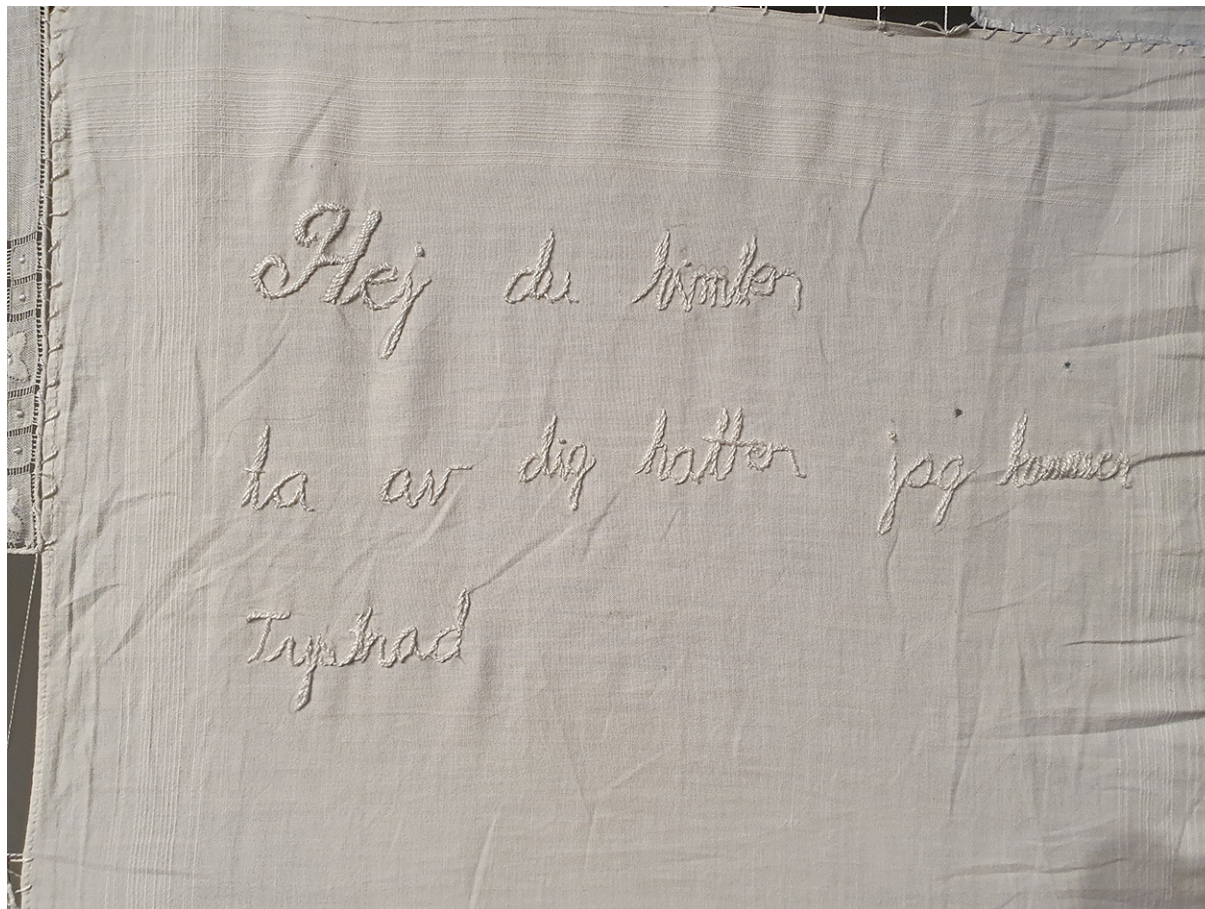 Hej du himlen
ta av dig hatten jag kommer
Tystnad